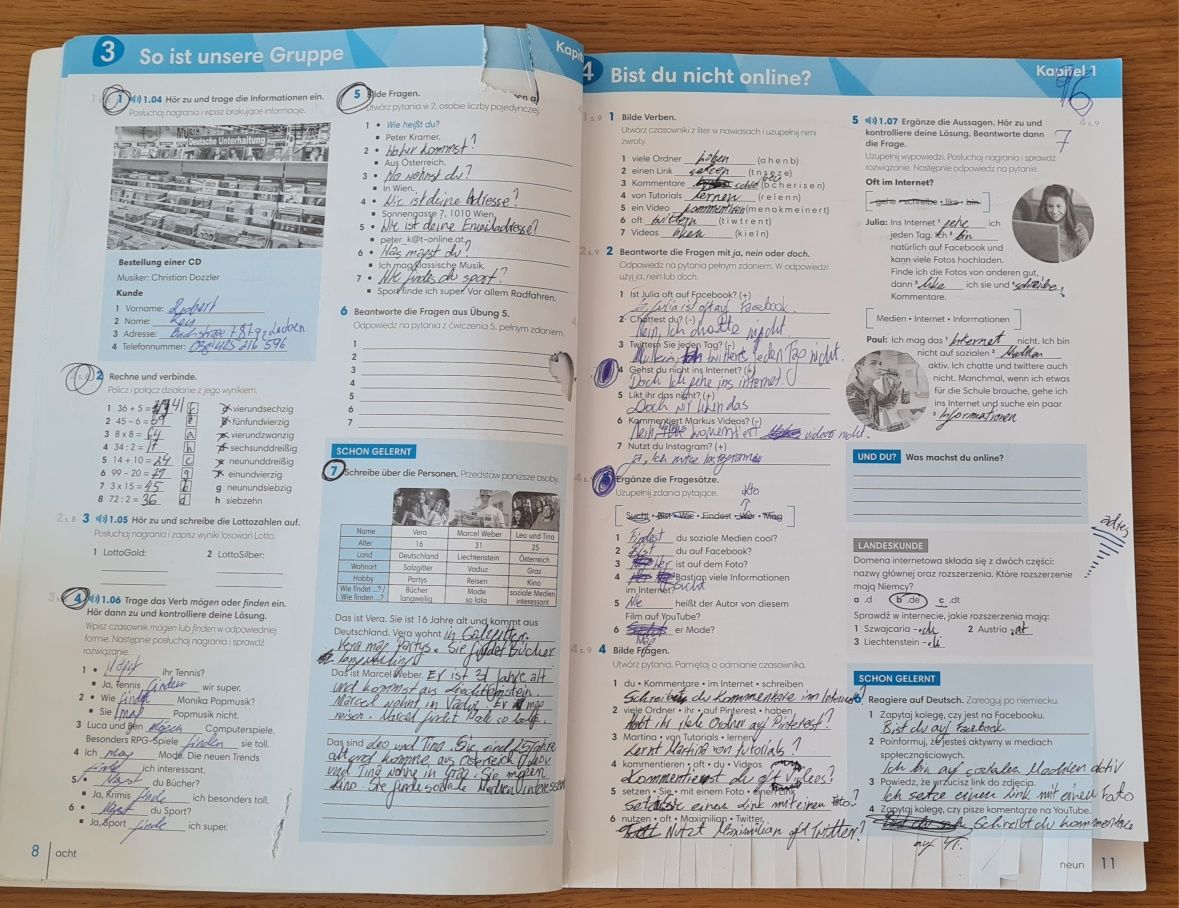 3 So ist unsere Gruppe
1 1.04 Hör zu und trage die Informationen ein.
Posłuchaj nagrania i wpisz brakujące informacje.
Deutsche Unterhaltung
Bestellung einer CD
Musiker: Christian Dozzler
Kunde
1 Vorname: Robert
2 Name:
3 Adresse:
4 Telefonnummer:
2 Rechne und verbinde.
Policz i połącz działanie z jego wynikiem.
1 36 + 5 = 41
2 45 – 6 = 39 e
3 8 x 8 = 64 a
4 34 : 2 = 17 h
5 14 + 10 = 24 c
6 99 – 20 = 79 g
7 3 x 15 = 45 b
8 72 : 2 = 36 d
vierundsechzig
fünfundvierzig
vierundzwanzig
sechsunddreißig
neununddreißig
einundvierzig
g neunundsiebzig
h siebzehn
2 s. 8 3 1.05 Hör zu und schreibe die Lottozahlen auf.
Posłuchaj nagrania i zapisz wyniki losowań Lotto.
1 LottoGold:
2 LottoSilber:
4 1.06 Trage das Verb mögen oder finden ein.
Hör dann zu und kontrolliere deine Lösung.
Wpisz czasownik mögen lub finden w odpowiedniej
formie. Następnie posłuchaj nagrania i sprawdź
rozwiązanie.
1 ihr Tennis?
Ja, Tennis finden wir super.
2 Wie findet Monika Popmusik?
Sie mag Popmusik nicht.
3 Luca und Ben mögen Computerspiele.
Besonders RPG-Spiele finden sie toll.
4 Ich mag Mode. Die neuen Trends
finde ich interessant.
5 Magst du Bücher?
Ja, Krimis finde ich besonders toll.
6 Magst du Sport?
Ja, Sport finde ich super.
8 acht
5 Bilde Fragen.
Utwórz pytania w 2. osobie liczby pojedynczej.
1 Wie heißt du?
Peter Kramer.
2 kommst?
Aus Österreich.
3 Wo wohnst du?
In Wien.
4 Wie ist deine Adresse?
Sonnengasse 7, 1010 Wien.
5 Wie ist deine Emailadresse?
peter_k@t-online.at
6 Was magst du?
Ich mag klassische Musik.
7 Wie findes du sport?
Sport finde ich super. Vor allem Radfahren.
6 Beantworte die Fragen aus Übung 5.
Odpowiedz na pytania z ćwiczenia 5. pełnym zdaniem.
1
2
3
4
5
6
7
SCHON GELERNT
7 Schreibe über die Personen. Przedstaw poniższe osoby.
Name Vera Marcel Weber Leo und Tina
Alter 16 31 25
Land Deutschland Liechtenstein Österreich
Wohnort Salzgitter Vaduz Graz
Hobby Partys Reisen Kino
Wie findet ...? / Wie finden ...? Bücher langweilig Mode so lala soziale Medien interessant
Das ist Vera. Sie ist 16 Jahre alt und kommt aus
Deutschland. Vera wohnt in
Vera mag Partys. Sie findet Bücher
Das ist Marcel Weber. Er ist 31 Jahre alt
und kommst aus
Marcel wohnt in Vaduz. Er mag
reisen. Marcel findet
Das sind Leo und Tina. Sie sind 25 Jahre
alt und komme aus Österreich. Leo
und Tina wohne in Graz. Sie mögen
Kino. Sie finde soziale Medien interessant
4 Bist du nicht online?
Kapitel 1
96
1 s. 9 1 Bilde Verben.
Utwórz czasowniki z liter w nawiasach i uzupełnij nimi
zwroty.
1 viele Ordner haben (a h e n b)
2 einen Link setzen (t n s e z e)
3 Kommentare (b c h e r i s e n)
4 von Tutorials lernen (r e l e n n)
5 ein Video kommentieren (m e n o k m e i n e r t)
6 oft twittern (t i w t r e n t)
7 Videos liken (k i e l n)
2 s. 9 2 Beantworte die Fragen mit ja, nein oder doch.
Odpowiedz na pytania pełnym zdaniem. W odpowiedzi
użyj ja, nein lub doch.
1 Ist Julia oft auf Facebook? (+)
Julia ist oft auf Facebook.
2 Chattest du? (–)
Nein, Ich chatte nicht
3 Twittern Sie jeden Tag? (–)
twittere jeden Tag nicht.
4 Gehst du nicht ins Internet? (+)
Doch Ich gehe ins internet.
5 Likt ihr das nicht? (+)
Doch wir liken das
6 Kommentiert Markus Videos? (–)
Nein Markus videos nicht.
7 Nutzt du Instagram? (+)
Ja, Ich nutze Instagram
Ergänze die Fragesätze.
Uzupełnij zdania pytające.
kto
Sucht • Bist • Wie • Findest • Wer • Mag
1 Findest du soziale Medien cool?
2 Bist du auf Facebook?
3 Wer ist auf dem Foto?
4 Bastian viele Informationen
im Internet?
5 Wie heißt der Autor von diesem
Film auf YouTube?
6 er Mode?
Mag
4 s. 9 4 Bilde Fragen.
Utwórz pytania. Pamiętaj o odmianie czasownika.
1 du • Kommentare • im Internet • schreiben
du Kommentare im Internet?
2 viele Ordner • ihr • auf Pinterest • haben
Habt ihr viele Ordner auf Pinterest?
3 Martina • von Tutorials • lernen
Lernt Martina von tutorials?
4 kommentieren • oft • du • Videos
Kommentierst du oft Videos?
5 setzen • Sie • mit einem Foto • einen Link
einen Link mit einem Foto?
6 nutzen • oft • Maximilian • Twitter
Nutzt Maximilian oft Twitter?
5 1.07 Ergänze die Aussagen. Hör zu und
kontrolliere deine Lösung. Beantworte dann
die Frage.
7
Uzupełnij wypowiedzi. Posłuchaj nagrania i sprawdź
rozwiązanie. Następnie odpowiedz na pytanie.
Oft im Internet?
gehe • schreibe • like • bin
Julia: Ins Internet gehe ich
jeden Tag. Ich bin
natürlich auf Facebook und
kann viele Fotos hochladen.
Finde ich die Fotos von anderen gut,
dann like ich sie und schreibe
Kommentare.
Medien • Internet • Informationen
Paul: Ich mag das Internet nicht. Ich bin
nicht auf sozialen Medien
aktiv. Ich chatte und twittere auch
nicht. Manchmal, wenn ich etwas
für die Schule brauche, gehe ich
ins Internet und suche ein paar
Informationen
UND DU? Was machst du online?
adres
LANDESKUNDE
Domena internetowa składa się z dwóch części:
nazwy głównej oraz rozszerzenia. Które rozszerzenie
mają Niemcy?
a .d b .de c .dt
Sprawdź w internecie, jakie rozszerzenia mają:
1 Szwajcaria .ch 2 Austria .at
3 Liechtenstein .li
SCHON GELERNT
6 Reagiere auf Deutsch. Zareaguj po niemiecku.
1 Zapytaj kolegę, czy jest na Facebooku.
Bist du auf Facebook.
2 Poinformuj, że jesteś aktywny w mediach
społecznościowych.
Ich bin auf sozialen Medien aktiv
3 Powiedz, że wrzucisz link do zdjęcia.
Ich setze einen Link mit einen Foto
4 Zapytaj kolegę, czy pisze komentarze na YouTube.
Schreibt du kommentare
auf YT.
neun 11